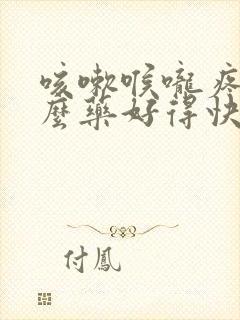 咳嗽喉嚨疼
麼藥好得快
付鳳